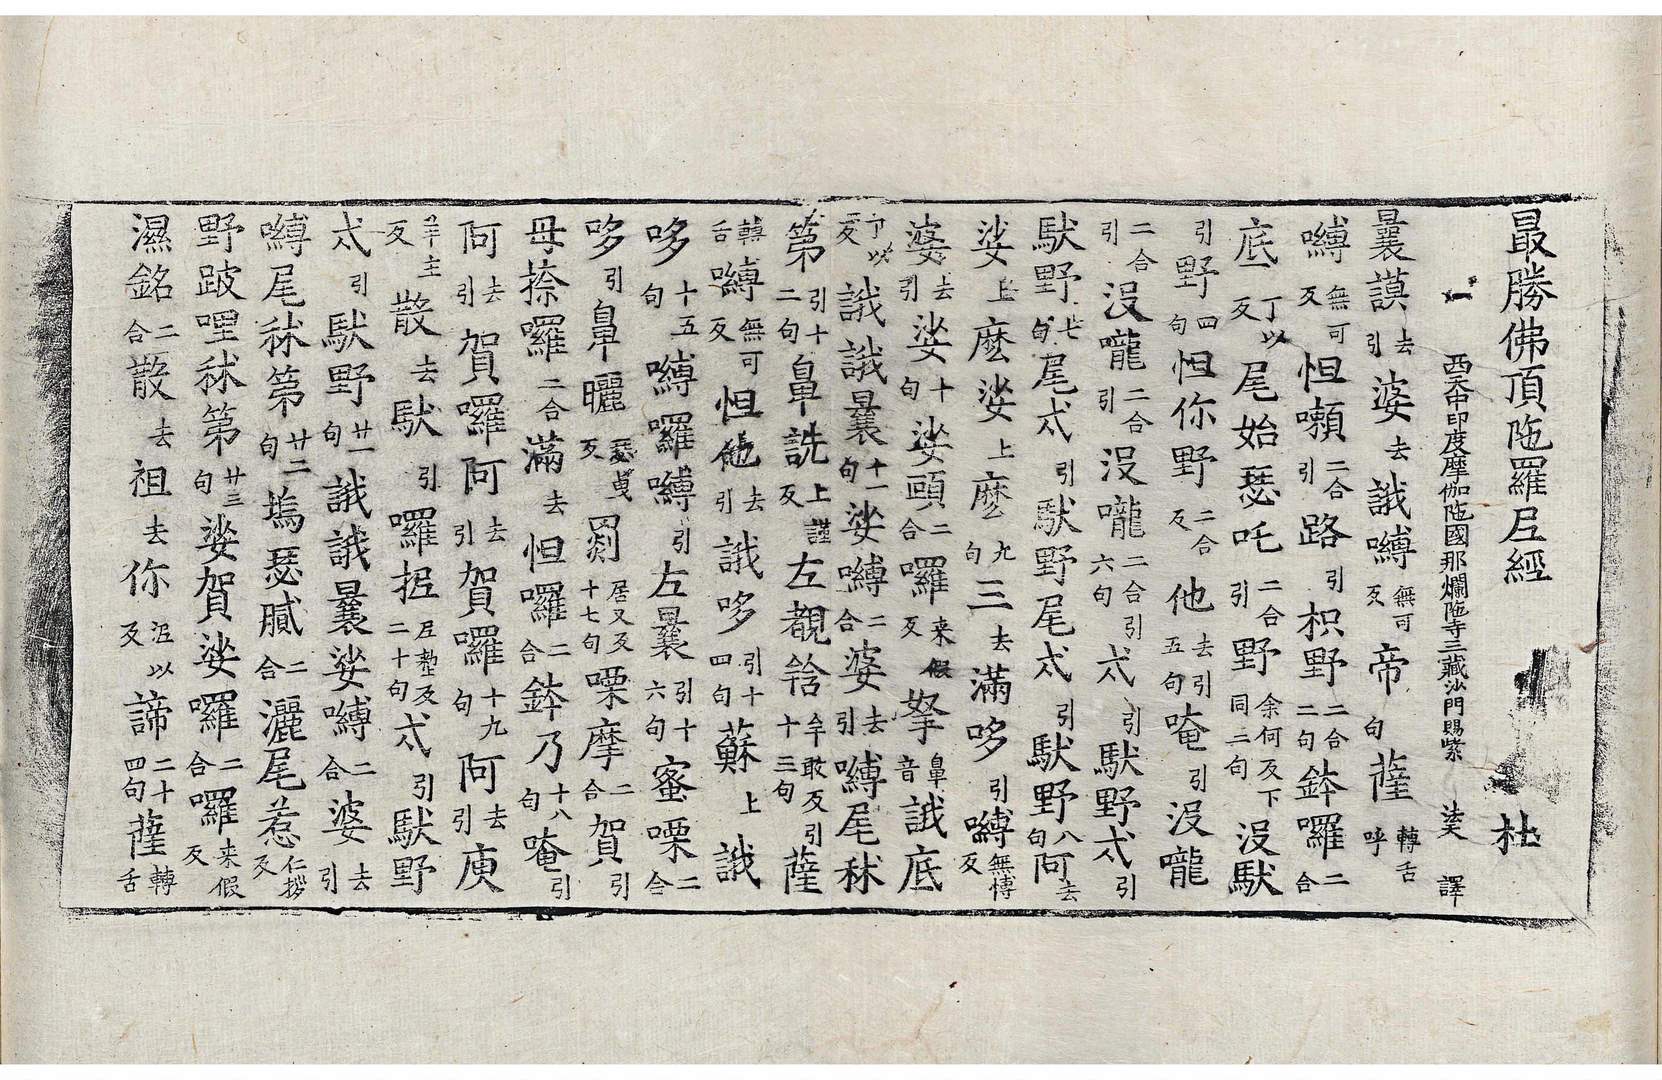 最勝佛頂陁羅尼經 杜
西天中印度摩伽陁國那爛陁寺三藏沙門賜紫 法天 譯
曩謨引去婆去誐嚩無可反帝句薩轉舌呼
嚩無可反怛嚩二合引路引枳野二合二句鉢囉二合
底丁以反尾始瑟吒二合引野余何反下同三句沒馱
引野四句怛你野二合反他去引五句唵引沒嚨
二合引沒嚨二合引沒嚨二合引六句忒引馱野忒引
馱野七句尾忒引馱野尾忒引馱野八句阿去
娑上麽娑上麽九句三去滿哆引嚩無愽反
婆去引娑十句娑頗二合囉来假反拏鼻音誐底
丁以反誐誐曩十一句娑嚩二合婆去引嚩尾秫
第引十二句鼻詵上謹反左覩䇢牟敢反引十三句薩
轉舌嚩無可反怛他去引誐哆引十四句蘇上誐
哆十五句嚩囉嚩引左曩引十六句蜜㗚二合
哆引鼻曬瑟曳反罽居乂反十七句㗚摩二合賀引
母捺囉二合滿去怛囉二合鉢乃十八句唵引
阿去引賀囉阿去引賀囉十九句阿去引庾
羊主反散去馱引囉抳尼整反二十句忒引馱野
忒引馱野廿一句誐誐曩娑嚩二合婆去引
嚩尾秫第廿二句塢瑟膩二合灑尾惹仁拶反
野跛哩秫第廿三句娑賀娑囉二合囉来假反
濕銘二合散去祖去你泥以反諦二十四句薩轉舌